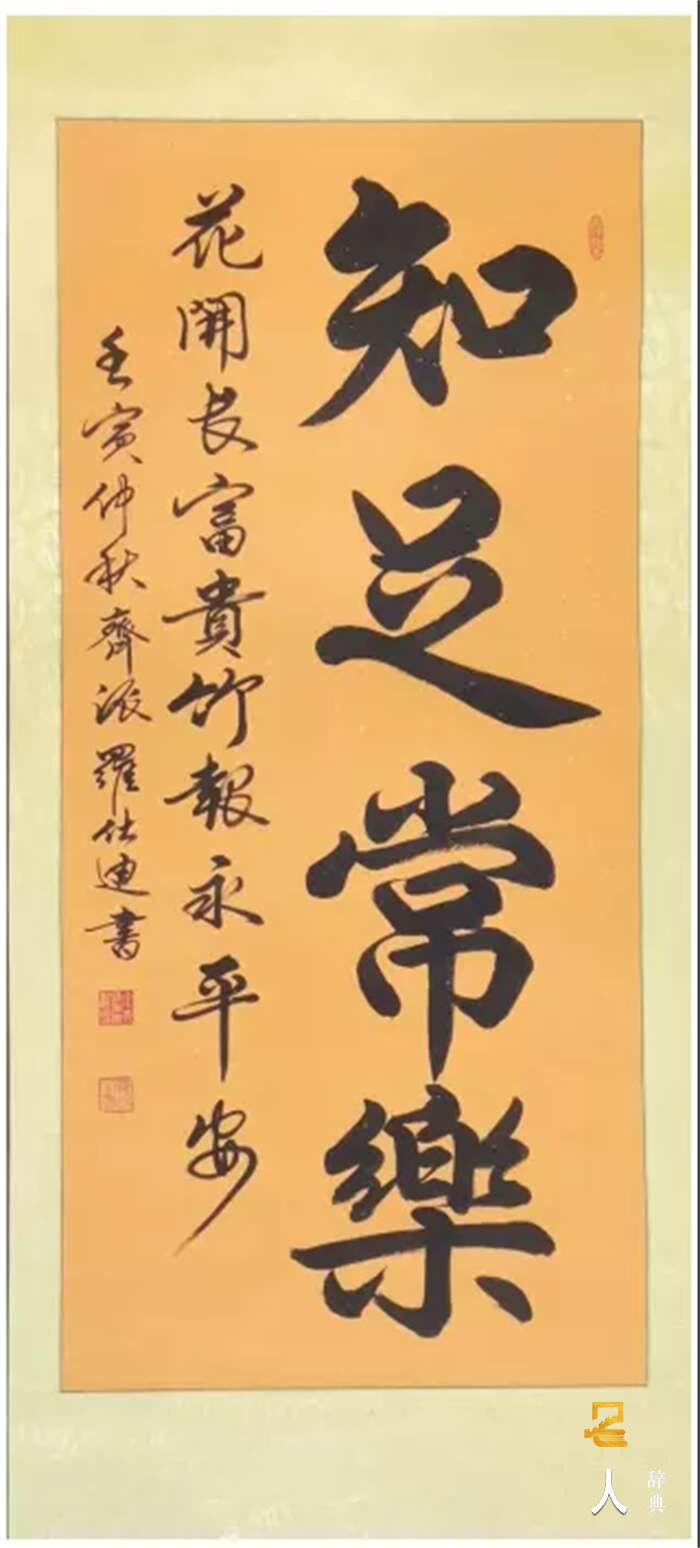 知足常樂
花開长富貴竹報永平安
壬寅仲秋齊派羅仕迪書
人
辞典